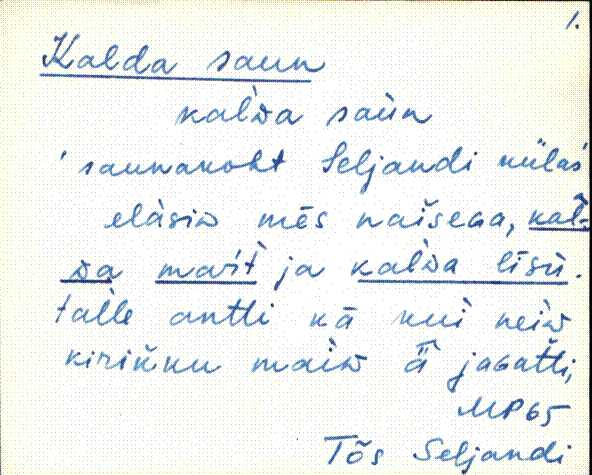 1.
Kalda saun
kal̀ᴅa saùn
' saunakoht Seljandi külas'
elàsiᴅ mēs naišeɢa, kal̀-
ᴅa mar̀t̀ ja kal̀ᴅa līsù.
talle antti kā kui neiᴅ
kirikku maiᴅ ǟ jaɢatti,
MP65
Tõs Seljandi